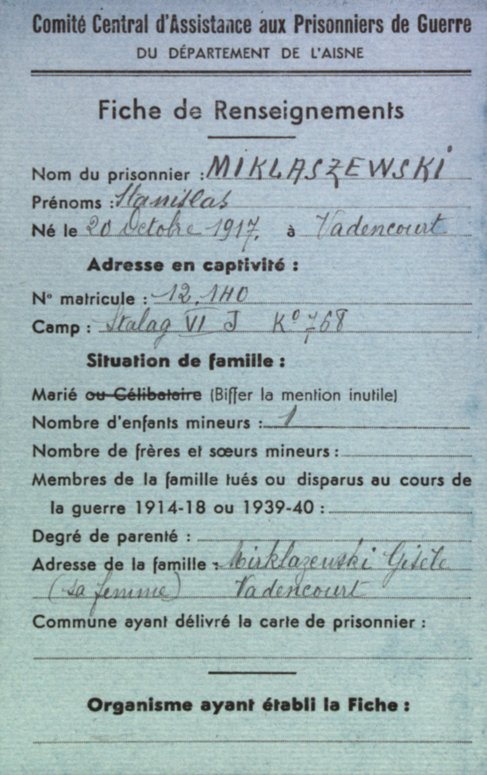 Comité Central d'Assistance aux Prisonniers de Guerre
DU DÉPARTEMENT DE L'AISNE
Fiche de Renseignements
Nom du prisonnier : MIKLASZEWSKI
Prénoms : Stanislas
Né le 20 Octobre 1917, à Vadencourt
Adresse en captivité :
N° matricule : 12.140
Camp : Stalag VI J K° 768
Situation de famille :
Marié ou Célibataire (Biffer la mention inutile)
Nombre d'enfants mineurs : 1
Nombre de frères et sœurs mineurs :
Membres de la famille tués ou disparus au cours de
la guerre 1914-18 ou 1939-40 :
Degré de parenté :
Adresse de la famille : Mirklazewski Gisèle
(sa femme) Vadencourt
Commune ayant délivré la carte de prisonnier :
Organisme ayant établi la Fiche :